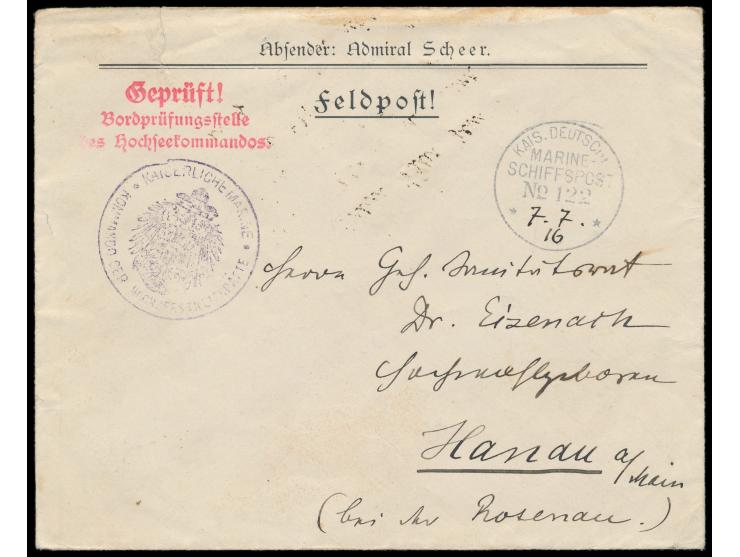 Absender: Admiral Scheer.
Feldpost!
Geprüft!
Bordprüfungsstelle
des Hochseekommandos.
KAISERLICHE MARINE * KOMMANDO DER HOCHSEESTREITKRÄFTE *
KAIS. DEUTSCHE
MARINE-
SCHIFFSPOST
No 122
7. 7.
16
Herrn Geh. Sanitätsrat
Dr. Eizenach
Hochwohlgeboren
Hanau a/Main
(bei Rosenau.)